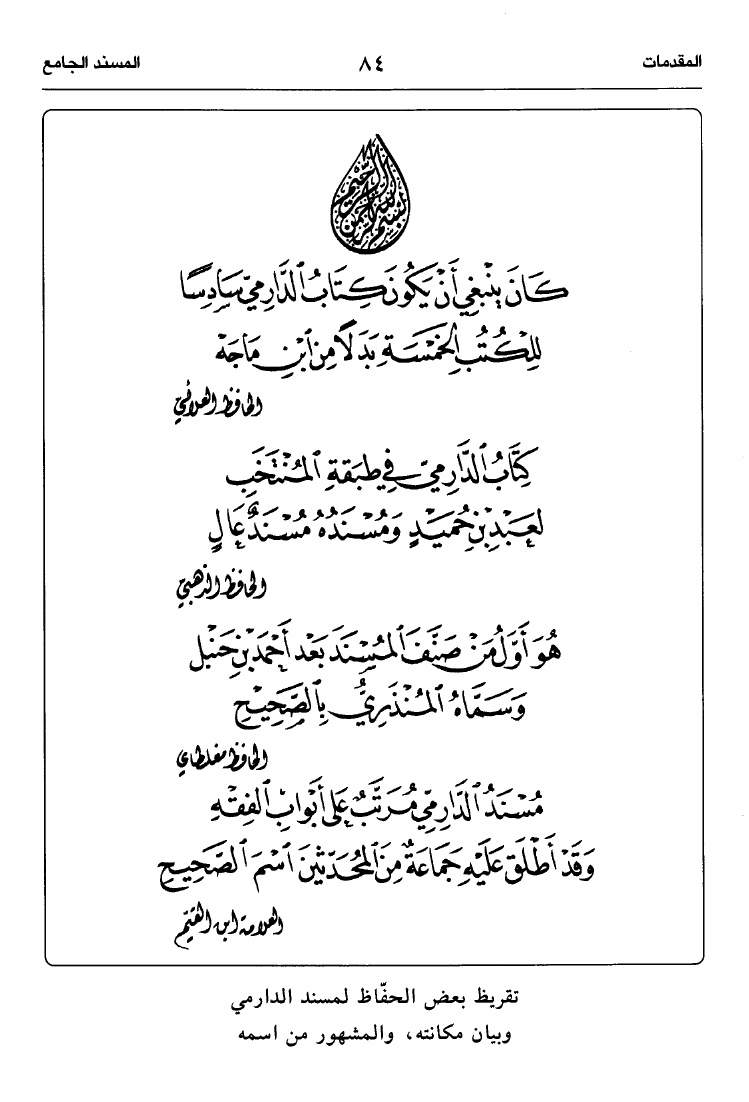 المقدمات ٨٤ المسند الجامع
بسم الله الرحمن الرحيم
كَانَ يَنْبَغِي أَنْ يَكُونَ كِتَابُ الدَّارِمِيِّ سَادِسًا
لِلْكُتُبِ الْخَمْسَةِ بَدَلًا مِنِ ابْنِ مَاجَهْ
الحافظ العلائيّ
كِتَابُ الدَّارِمِيِّ فِي طَبَقَةِ الْمُنْتَخَبِ
لِعَبْدِ بْنِ حُمَيْدٍ وَمُسْنَدُهُ مُسْنَدٌ عَالٍ
الحافظ الذهبيّ
هُوَ أَوَّلُ مَنْ صَنَّفَ الْمُسْنَدَ بَعْدَ أَحْمَدَ بْنِ حَنْبَلٍ
وَسَمَّاهُ الْمُنْذِرِيُّ بِالصَّحِيحِ
الحافظ مغلطاي
مُسْنَدُ الدَّارِمِيِّ مُرَتَّبٌ عَلَى أَبْوَابِ الْفِقْهِ
وَقَدْ أَطْلَقَ عَلَيْهِ جَمَاعَةٌ مِنَ الْمُحَدِّثِينَ اسْمَ الصَّحِيحِ
العلامة ابن القيّم
تقريظ بعض الحفّاظ لمسند الدارمي
وبيان مكانته، والمشهور من اسمه